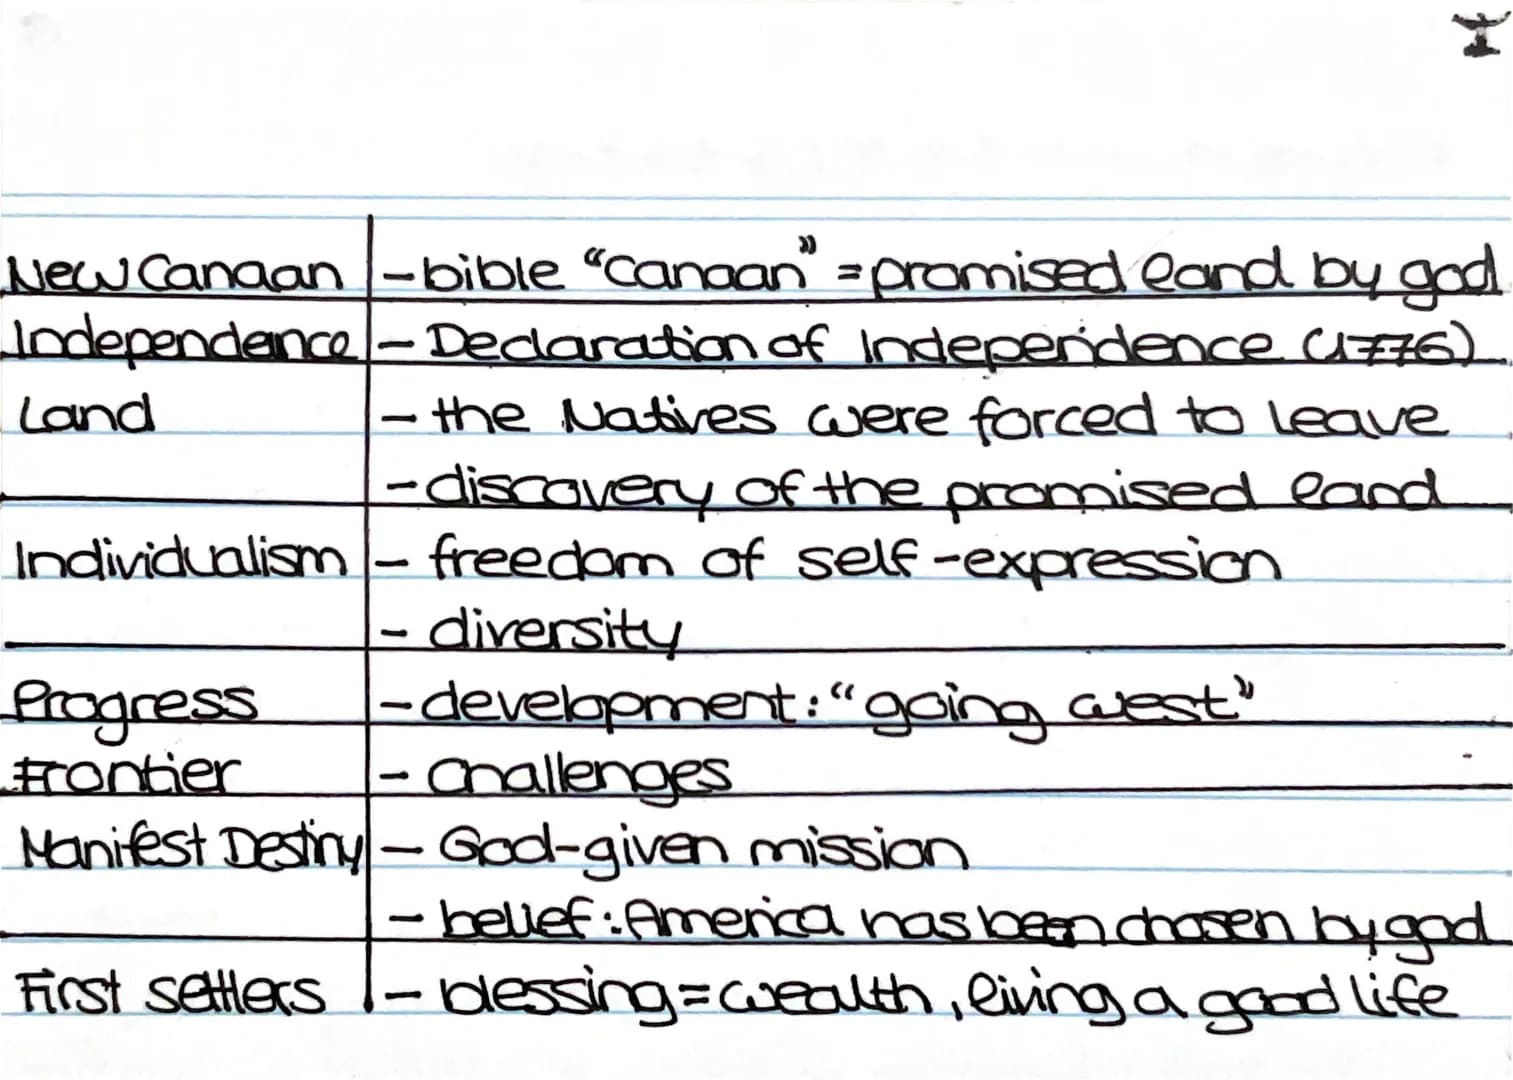 New Canaan - bible "Canaan" = promised land by god
Independence - Declaration of Independence (1776)
Land - the Natives were forced to leave
- discovery of the promised land
Individualism - freedom of self-expression
- diversity
Progress - development: "going west"
Frontier - challenges
Manifest Destiny - God-given mission
- belief: America has been chosen by god
First settlers - blessing = wealth, living a good life